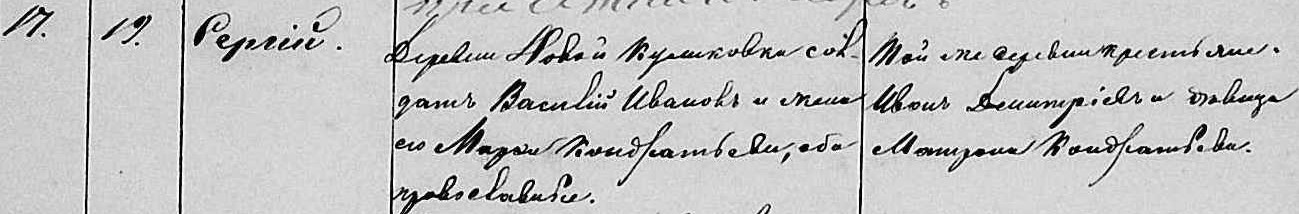 17. 19. Сергій.
Деревни Новой Кушковки сол-
датъ Василій Ивановъ и жена
его Марѳа Кондратьева, оба
православные.
Той же деревни крестьяне.
Иванъ Димитріевъ и дѣвица
Матрона Кондратьева.